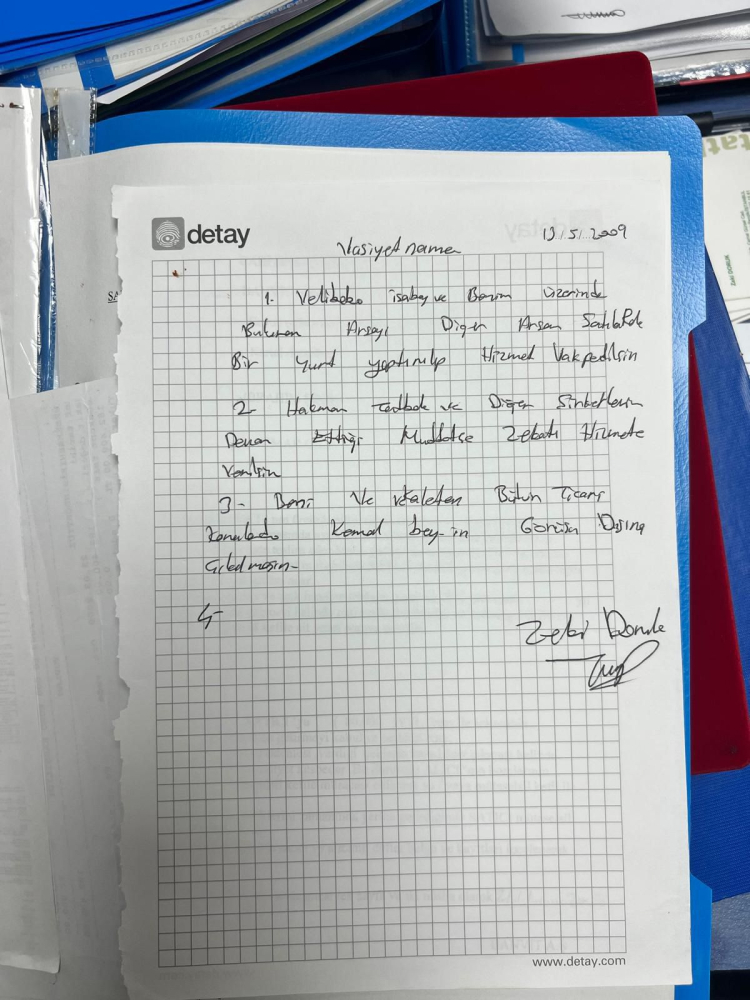 detay
Vasiyet name
19/5/2009
1. Velibaba isabey ve Benim üzerinde
Bulunan Arsayı Diğer Arsan Sahibide
Bir yurt yaptırılıp Hizmet Vakfedilsin
2- Hakman ve Diğer Şirketlerin
Devam Ettiği Müddetçe Zekatı Hizmete
Verilsin
3- Beni Ve vekaleten Bütün Ticari
Konularda Kemal bey-in Görüşü Dışına
Çıkılmasın-
4-
Zeki
www.detay.com